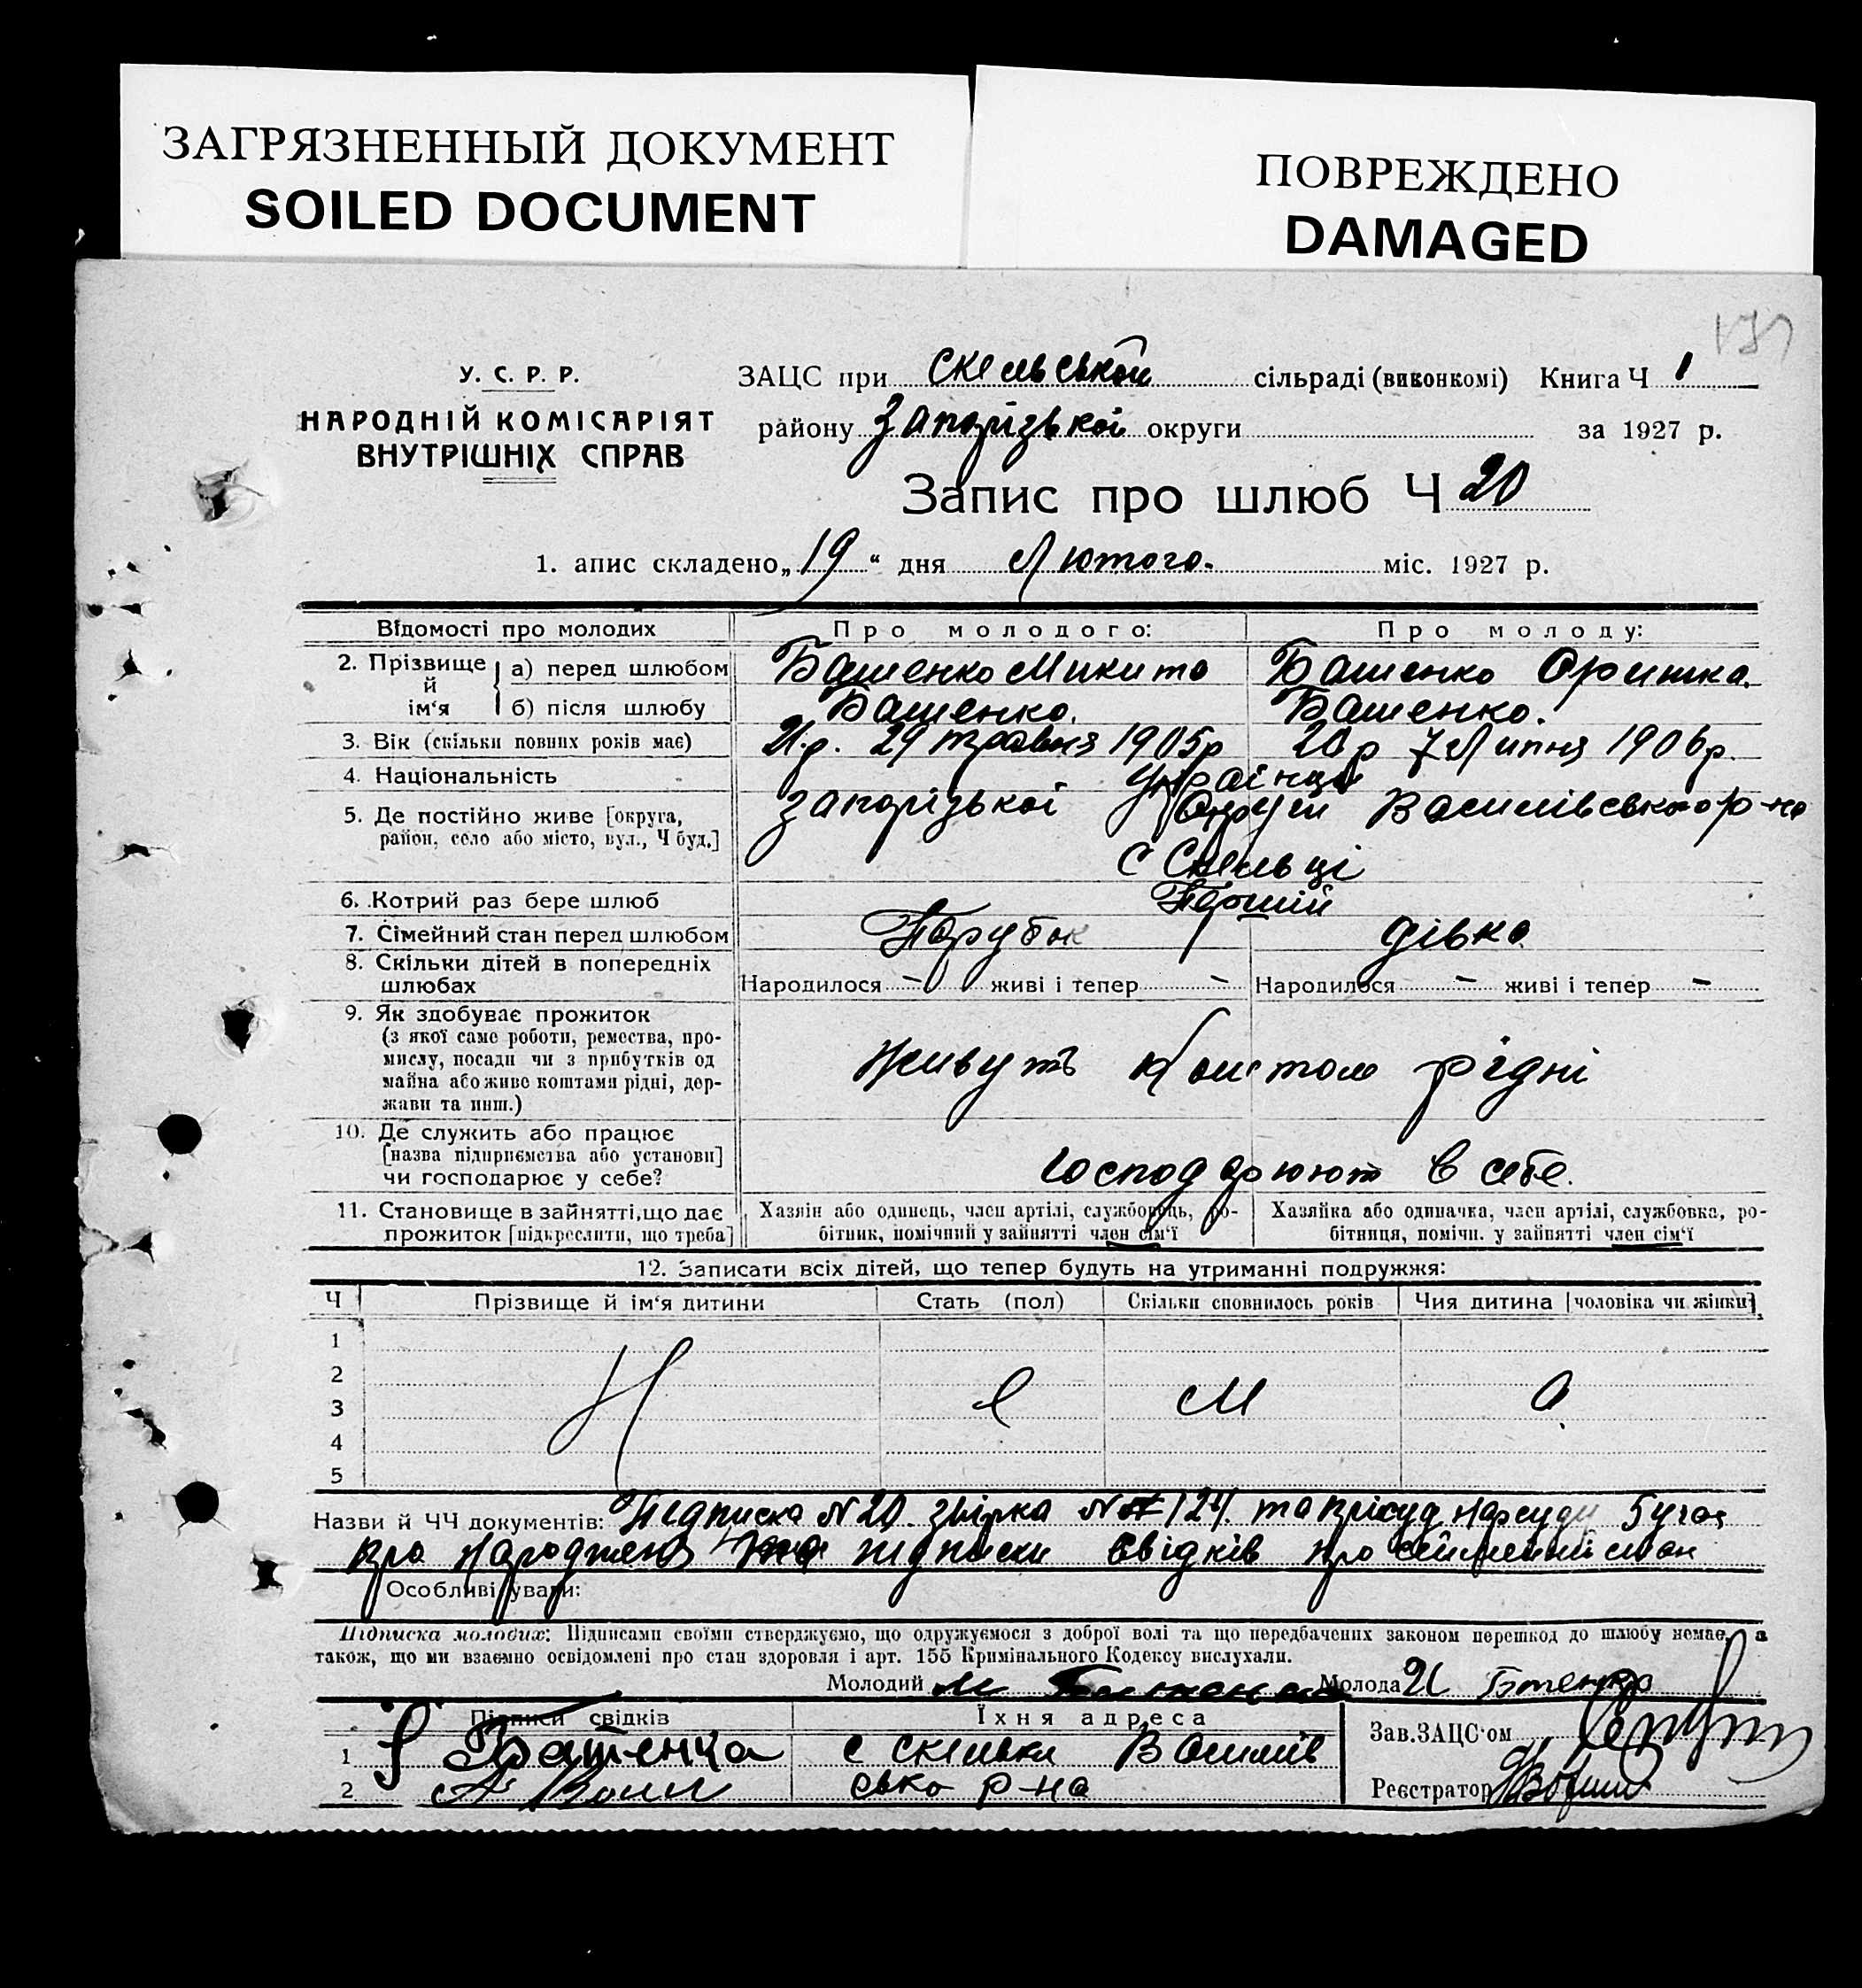 ЗАГРЯЗНЕННЫЙ ДОКУМЕНТ
SOILED DOCUMENT
ПОВРЕЖДЕНО
DAMAGED
У. С. Р. Р.
НАРОДНІЙ КОМІСАРІЯТ
ВНУТРІШНІХ СПРАВ
ЗАЦС при Скельській сільраді (виконкомі) Книга Ч 1
району Запорізької округи за 1927 р.
Запис про шлюб Ч 20
1. апис складено „19“ дня Лютого. міс. 1927 р.
Відомості про молодих Про молодого: Про молоду:
2. Прізвище й ім'я а) перед шлюбом Башенко Микита Башенко Оришка.
б) після шлюбу Башенко. Башенко.
3. Вік (скільки повних років має) 21.р. 29 травня 1905р 20р 7 Липня 1906р.
4. Національність Українці
5. Де постійно живе [округа, Запорізької Округи Василівського р-на
район, село або місто, вул., Ч буд.]
с Скельці
6. Котрий раз бере шлюб Перший
7. Сімейний стан перед шлюбом Парубок дівка
8. Скільки дітей в попередніх
шлюбах Народилося - живі і тепер - Народилося - живі і тепер -
9. Як здобуває прожиток
(з якої саме роботи, ремества, про-
мислу, посади чи з прибутків од
майна або живе коштами рідні, дер-
жави та инш.)
живуть Коштом рідні
10. Де служить або працює
[назва підприємства або установи]
чи господарює у себе?
Господарюют в себе.
11. Становище в зайнятті, що дає
прожиток [підкреслити, що треба]
Хазяїн або одинець, член артілі, службовець, ро-
бітник, помічний у зайнятті член сім'ї
Хазяйка або одиначка, член артілі, службовка, ро-
бітниця, помічн. у зайнятті член сім'ї
12. Записати всіх дітей, що тепер будуть на утриманні подружжя:
Ч Прізвище й ім'я дитини Стать (пол) Скільки сповнилось років Чия дитина [чоловіка чи жінки]
1
2
3 Н е м а
4
5
Назви й ЧЧ документів: Підписка N 20. збірка та присуд Нарсуду
про Народжен підписки свідків про сімейний стан
Особливі уваги:
Підписка молодих: Підписами своїми стверджуємо, що одружуємося з доброї волі та що передбачених законом перешкод до шлюбу немає, а
також, що ми взаємно освідомлені про стан здоровля і арт. 155 Кримінального Кодексу вислухали.
Молодий М Молода
Підписи свідків Їхня адреса
1 с Скельки Василів
2 сько р-на
Зав. ЗАЦС'ом
Реєстратор